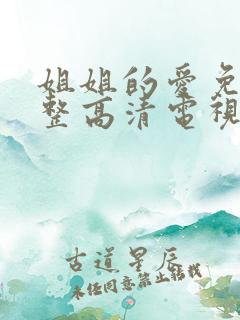 姐姐的愛免
整高清電視
古道星辰
未经同意禁止转载